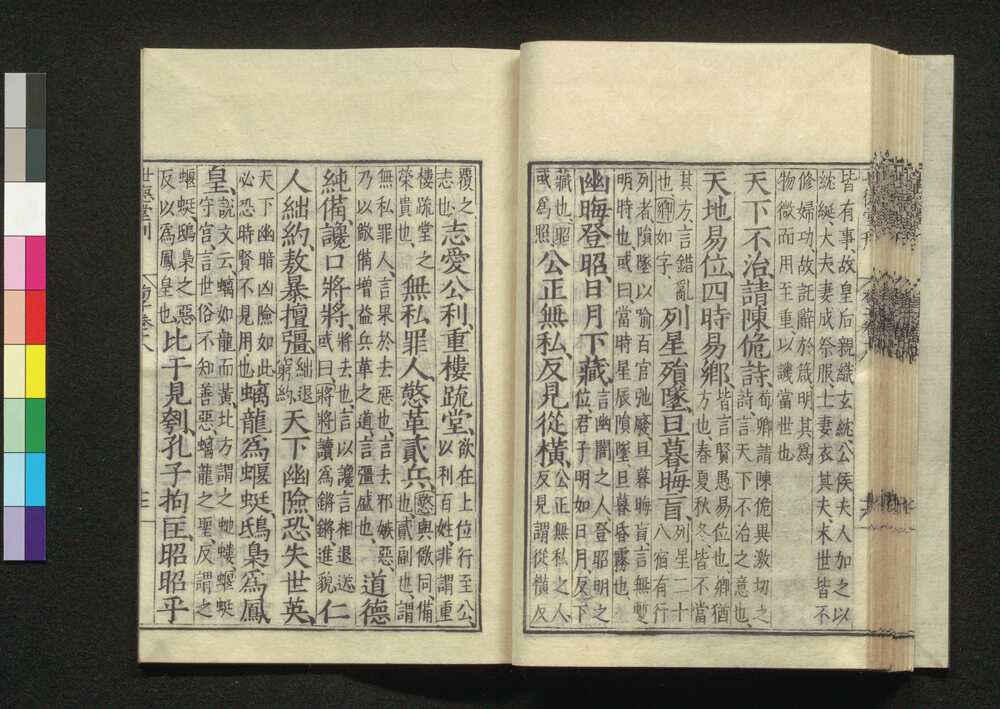 皆有事故皇后親織玄紞公侯夫人加之以
紘綖大夫妻成祭服士妻衣其夫末世皆不
修婦功故託辭於箴明其爲
物微而用至重以譏當世也
天下不治請陳佹詩荀卿請陳佹異激切之詩言天下不治之意也
天地易位四時易鄉皆言賢愚易位也鄉猶方也春夏秋冬皆不當
其方言錯亂也鄉如字列星殞墜旦暮晦盲列星二十八宿有行
列者隕墜以喻百官弛廢旦暮晦盲言無蹔明時也或曰當時星辰隕墜旦暮昏霧也
幽晦登昭日月下藏言幽闇之人登昭明之位君子明如日月反下
藏也昭或爲照公正無私反見從橫公正無私之人反見謂從橫反
覆之志也志愛公利重樓疏堂欲在上位行至公以利百姓非謂重
樓疏堂之榮貴也無私罪人憼革貳兵憼與儆同備也貳副也謂
無私罪人言果於去惡也言去邪嫉惡乃以儆備增益兵革之道言彊盛也道德
純備讒口將將將去也言以讒言相退送或曰將將讀爲鏘鏘進貌仁
人絀約敖暴擅彊絀退窮約天下幽險恐失世英
天下幽暗凶險如此必恐時賢不見用也螭龍爲蝘蜓鴟梟爲鳳
皇說文云螭如龍而黃北方謂之虵螻蝘蜓守宮言世俗不知善惡螭龍之聖反謂之
蝘蜓鴟梟之惡反以爲鳳皇也比干見刳孔子拘匡昭昭乎
世德堂刊